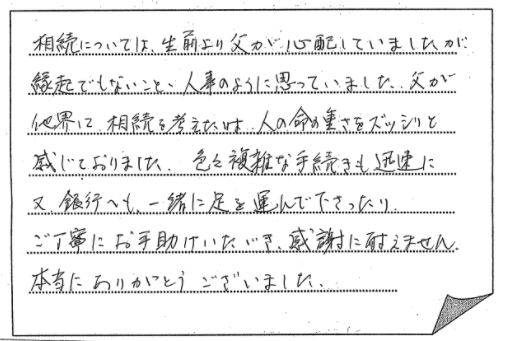 相続については、生前より父が心配していましたが
縁起でもないこと、人事のように思っていました。父が
他界して、相続を考えた時は、人の命の重さをズッシリと
感じておりました。色々複雑な手続きも迅速に
又、銀行へも、一緒に足を運んで下さったり、
ご丁寧にお手助けいただき、感謝に耐えません。
本当にありがとうございました。